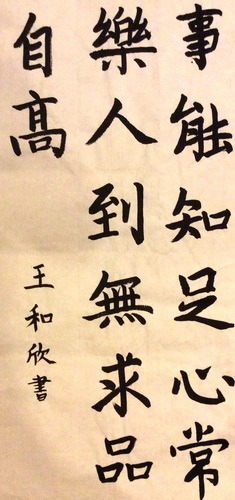 事能知足心常
樂人到無求品
自高
王和欣書